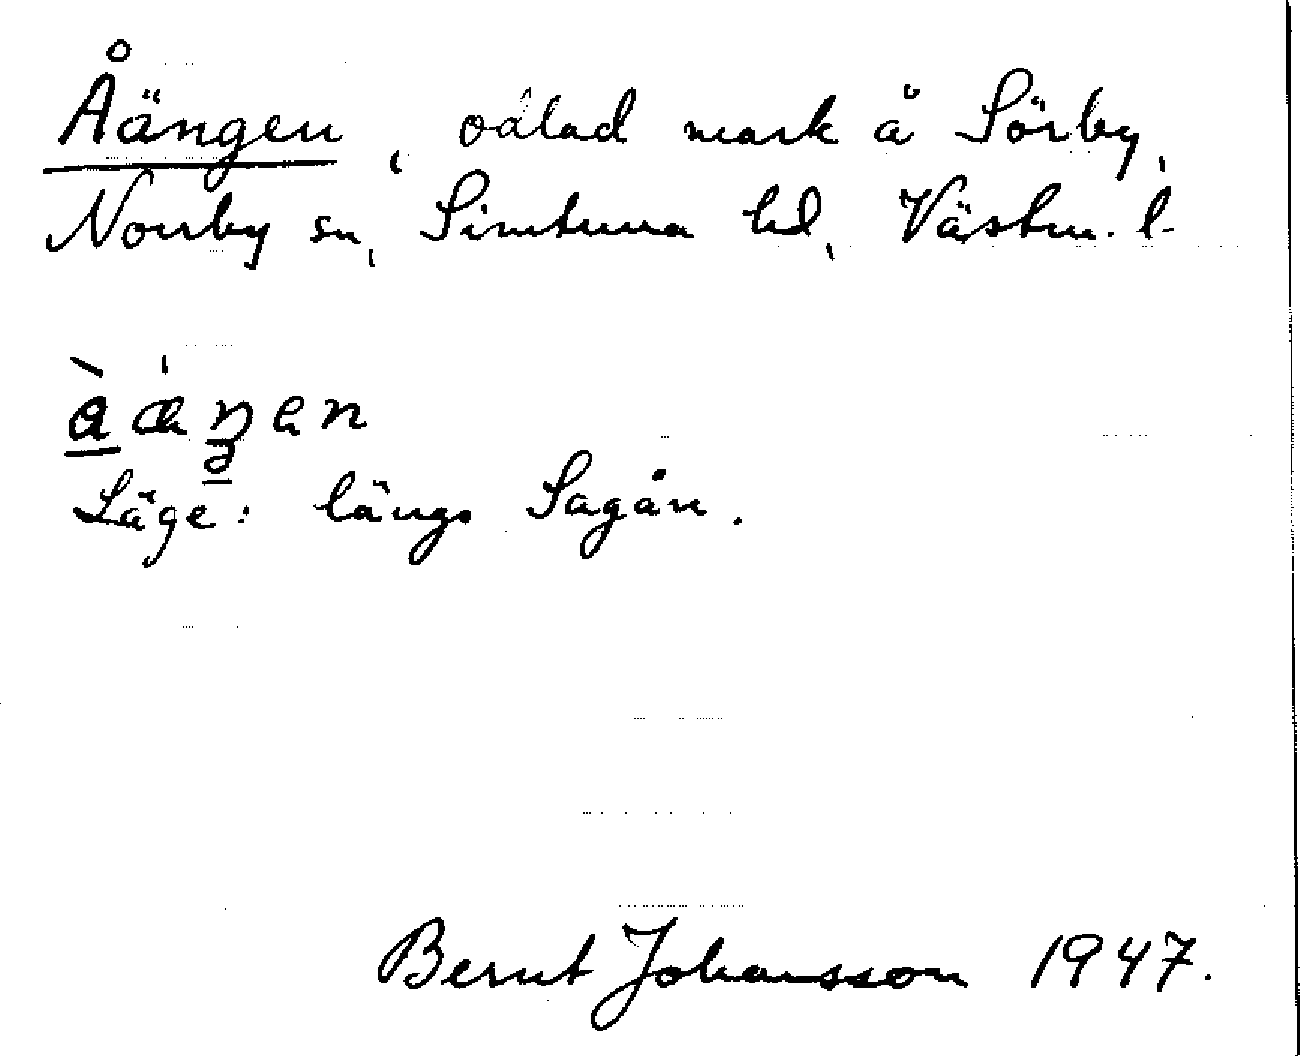 Åängen, odlad mark å Sörby,
Norrby sn, Simtuna hd, Västm. l.
Läge: längs Sagån.
Bernt Johansson 1947.